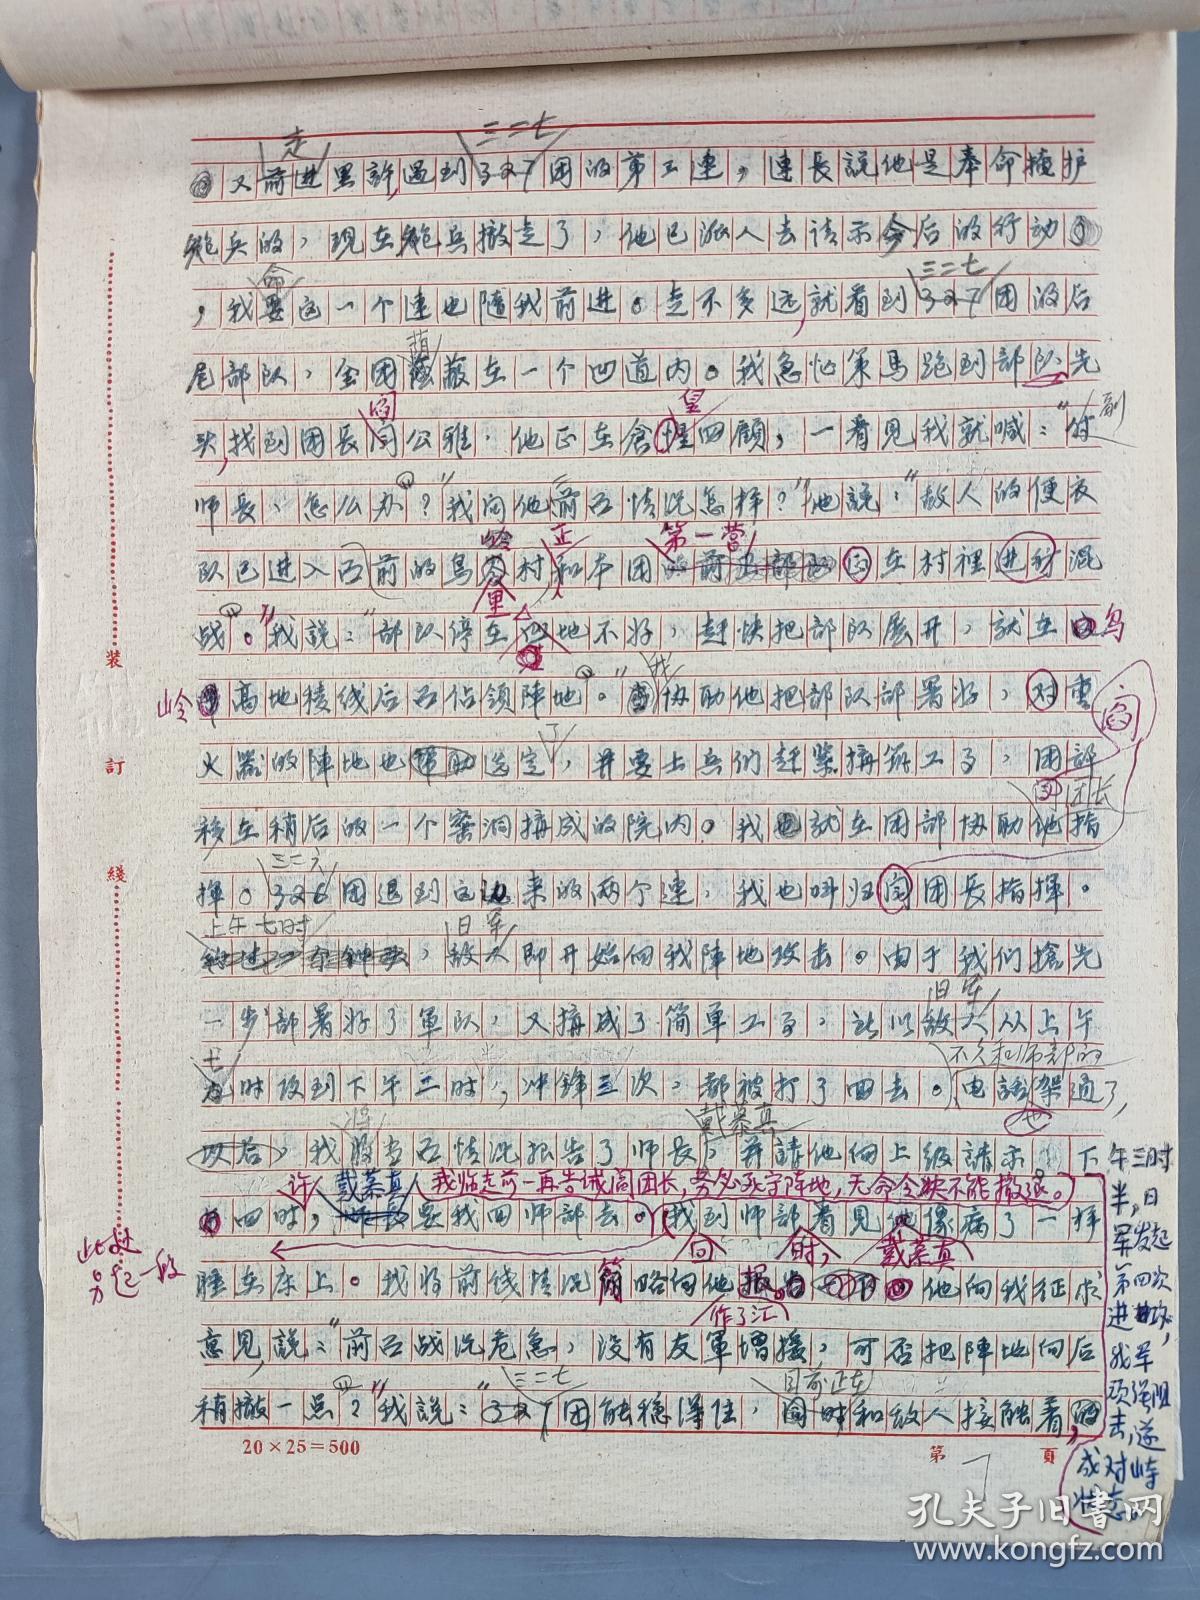 走
三二七
又前进里許，遇到327团的第三連，連長說他是奉命掩护
炮兵的，現在炮兵撤走了，他已派人去请示今后的行动
命
三二七
，我要这一个連也隨我前进。走不多远，就看到327团的后
尾部队，全团蔭蔽在一个凹道内。我急忙策馬跑到部队先
閻
皇
头，找到团長閻公雅，他正在倉惶四顧，一看見我就喊：“付
副
师長，怎么办？”我问他前面情况怎样？”他說：“敌人的便衣
岭
正
第一营
队已进入面前的鳥 村，和本团 在村裡进行混
里
战。”我說：“部队停在 地不好，赶快把部队展开，就在 鳥
岭 高地稜线后面佔領陣地。” 协助他把部队部署好，对重
我
閻
火器的陣地也帮助选定，并要士兵们赶緊搆筑工事，团部
了
团长
移在稍后的一个窑洞搆成的院内。我也就在团部协助他指
三二六
揮。326团退到这边来的两个連，我也叫归閻团長指揮。
上午七时
日軍
，敌人即开始向我陣地攻击。由于我们搶先
日军
一步部署好了軍队，又搆成了简单工事，所以敌人从上午
七
不久和师部的
时攻到下午二时，冲鋒三次，都被打了回去。电話架通了，
也
将
戴慕真
以后，我 面情况报告了师長，并請他向上级請示。下
午三时
半，日
军发起
第四次
进攻，
我军
顽强阻
击，遂
成对峙
状态。
许
戴慕真
我临走前一再告诫閻团长，务必死守阵地，无命令决不能撤退。
四时，师長要我回师部去。我到师部看見他像病了一样
此处
另起一段
向
时，
戴慕真
睡在床上。我将前线情况简略向他报告 他向我征求
作了汇
意見，説：“前面战况危急，没有友軍增援，可否把陣地向后
三二七
目前正在
稍撤一点？”我說：“327团能稳得住，同时和敌人接触着，
20×25=500
第 7 頁
装
訂
綫
孔夫子旧书网
www.kongfz.com